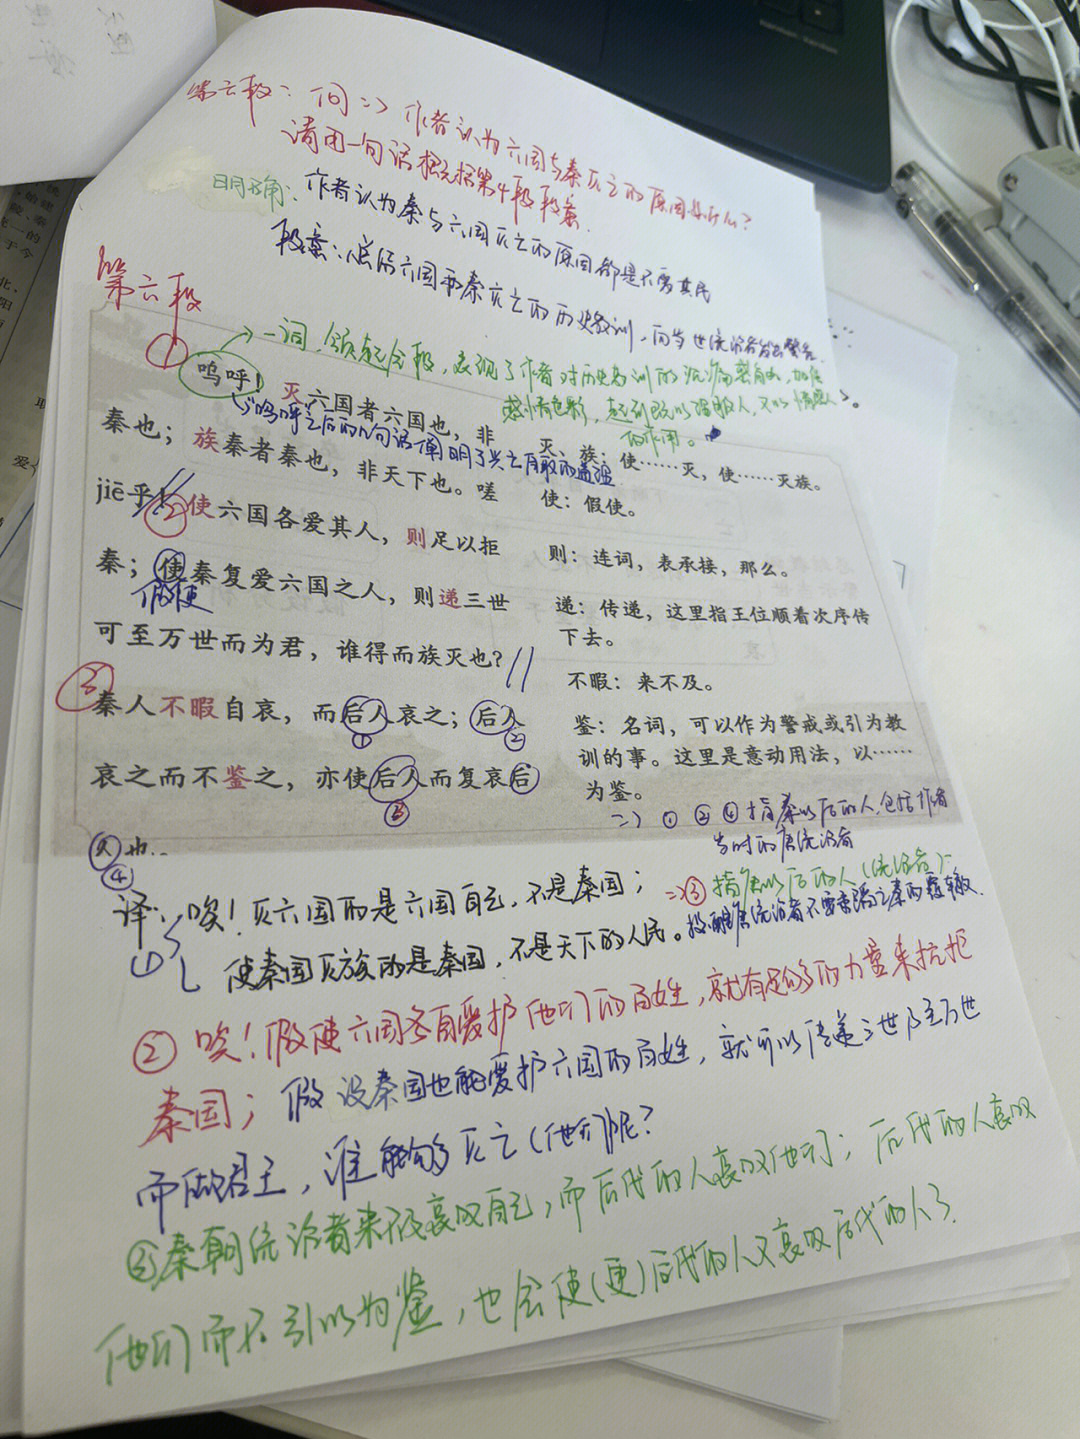 第六段：问=>作者认为六国与秦灭亡的原因是什么？
请用一句话概括第4段段意.
明确：作者认为秦与六国灭亡的原因都是不爱其民
段意：总结六国和秦灭亡的历史教训，向当世统治者发出警告.
第六段
①
→一词，领起全段，表现了作者对历史教训的沉痛
感情色彩，起到既以理服人，又以情感人
的作用。
呜呼！灭六国者六国也，非
呜呼之后的几句话阐明了兴亡自取的道理
秦也；族秦者秦也，非天下也。嗟
jiē乎！②使六国各爱其人，则足以拒
秦；使秦复爱六国之人，则递三世
假使
可至万世而为君，谁得而族灭也？
③秦人不暇自哀，而后人哀之；后人
① ②
哀之而不鉴之，亦使后人而复哀后
③
人也。
④
灭、族：使……灭，使……灭族。
使：假使。
则：连词，表承接，那么。
递：传递，这里指王位顺着次序传
下去。
不暇：来不及。
鉴：名词，可以作为警戒或引为教
训的事。这里是意动用法，以……
为鉴。
=>①②④指秦以后的人，包括作者
当时的唐统治者
=>③指唐以后的人（统治者）
提醒唐统治者不要重蹈亡秦的覆辙.
译：①唉！灭六国的是六国自己，不是秦国；
使秦国灭族的是秦国，不是天下的人民。
②唉！假使六国各自爱护他们的百姓，就有足够的力量来抗拒
秦国；假设秦国也能爱护六国的百姓，就可以传递三世乃至万世
而做君主，谁能够灭亡（他们）呢？
③秦朝统治者来不及哀叹自己，而后代的人哀叹他们；后代的人哀叹
他们而不引以为鉴，也会使（更）后代的人又哀叹后代的人了.